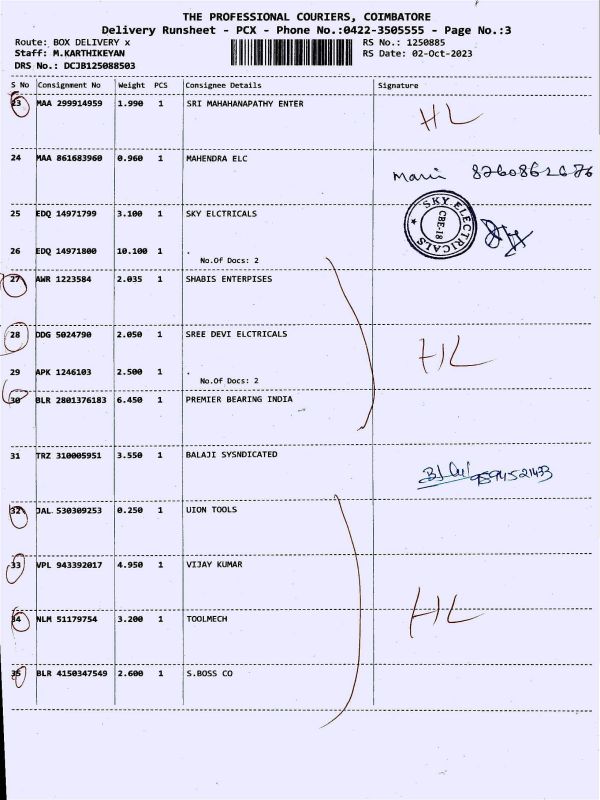 THE PROFESSIONAL COURIERS, COIMBATORE
Delivery Runsheet - PCX - Phone No.:0422-3505555 - Page No.:3
Route: BOX DELIVERY x RS No.: 1250885
Staff: M.KARTHIKEYAN RS Date: 02-Oct-2023
DRS No.: DCJB125088503
S No Consignment No Weight PCS Consignee Details Signature
23 MAA 299914959 1.990 1 SRI MAHAHANAPATHY ENTER
HL
24 MAA 861683960 0.960 1 MAHENDRA ELC
Mari 8760862676
25 EDQ 14971799 3.100 1 SKY ELCTRICALS
SKY ELECTRICALS
CBE-18
26 EDQ 14971800 10.100 1 .
No.Of Docs: 2
27 AWR 1223584 2.035 1 SHABIS ENTERPISES
28 DDG 5024790 2.050 1 SREE DEVI ELCTRICALS
HL
29 APK 1246103 2.500 1 .
No.Of Docs: 2
30 BLR 2801376183 6.450 1 PREMIER BEARING INDIA
31 TRZ 310005951 3.550 1 BALAJI SYSNDICATED
32 JAL 530309253 0.250 1 UION TOOLS
33 VPL 943392017 4.950 1 VIJAY KUMAR
34 NLM 51179754 3.200 1 TOOLMECH
HL
35 BLR 4150347549 2.600 1 S.BOSS CO